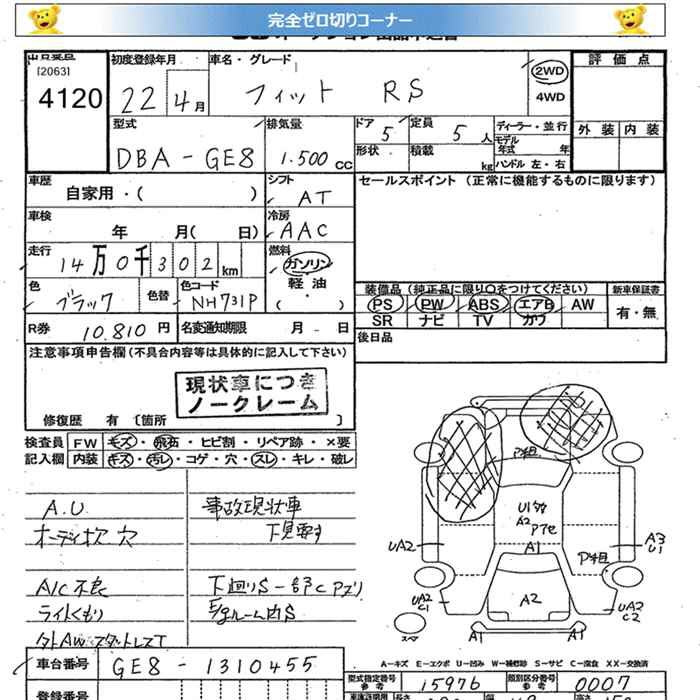 完全ゼロ切りコーナー
[2063]
4120
初度登録年月
22年4月
車名・グレード
フィット RS
2WD
4WD
評価点
外装 内装
型式
DBA-GE8
排気量
1.500 cc
ドア 5
定員 5 人
形状
積載 kg
ディーラー・並行
モデル年式 年
ハンドル 左・右
車歴
自家用・( )
シフト
AT
セールスポイント (正常に機能するものに限ります)
車検
年 月( 日)
冷房
AAC
走行
14万0千302km
燃料
ガソリン
軽油
( )
色
ブラック
色替
色コード
NH731P
装備品 (純正品に限り○をつけてください)
PS PW ABS エアB AW
SR ナビ TV カワ
新車保証書
有・無
R券 10.810円
名変通知期限 月 - 日
後日品
注意事項申告欄(不具合内容等は具体的に記入して下さい)
現状車につき
ノークレーム
修復歴 有 〔箇所 〕
検査員
記入欄
FW キズ・飛石・ヒビ割・リペア跡・×要
内装 キズ・汚レ・コゲ・穴・スレ・キレ・破レ
A.U
オーディオス穴
A/C不良
ライトくもり
事故現状車
下見要す
下廻りS
A2
A1
A2
UA2
A3
U1
UA2
C1
UA2
C2
A1
A1
スペア
A-キズ E-エクボ U-凹み W-補修跡 S-サビ C-腐食 XX-交換済
車台番号
GE8-1310455
型式指定番号
参考
15976
類別区分番号
参考
0007
登録番号